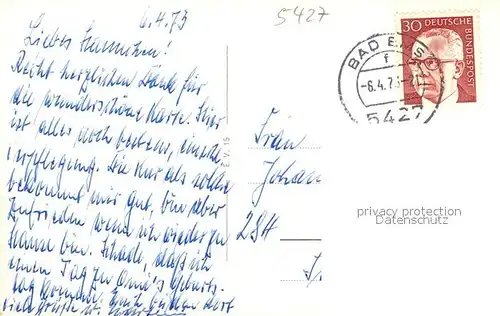 6.4.73
5427
Liebes Hannchen!
Recht herzlichen Dank für
die wunderschöne Karte. Hier
ist alles doch bestens, einschl.
Verpflegung. Die Kur als solche
bekommt mir gut, bin aber
zufrieden wenn ich wieder zu
Hause bin. Schade, daß ich
einen Tag zu Omi's Geburts-
tag komme.
viele Grüße
E.V. 15
30 DEUTSCHE BUNDESPOST
BAD EMS
f
-6.4.73
5427
Frau
Johan
2SH
privacy protection
Datenschutz